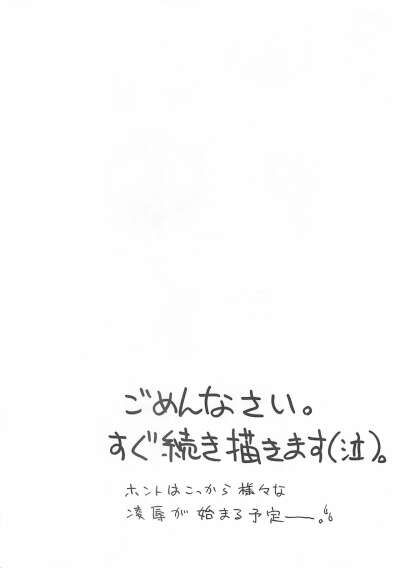 ごめんなさい。
すぐ続き描きます(泣)。
ホントはこっから様々な
凌辱が始まる予定——。